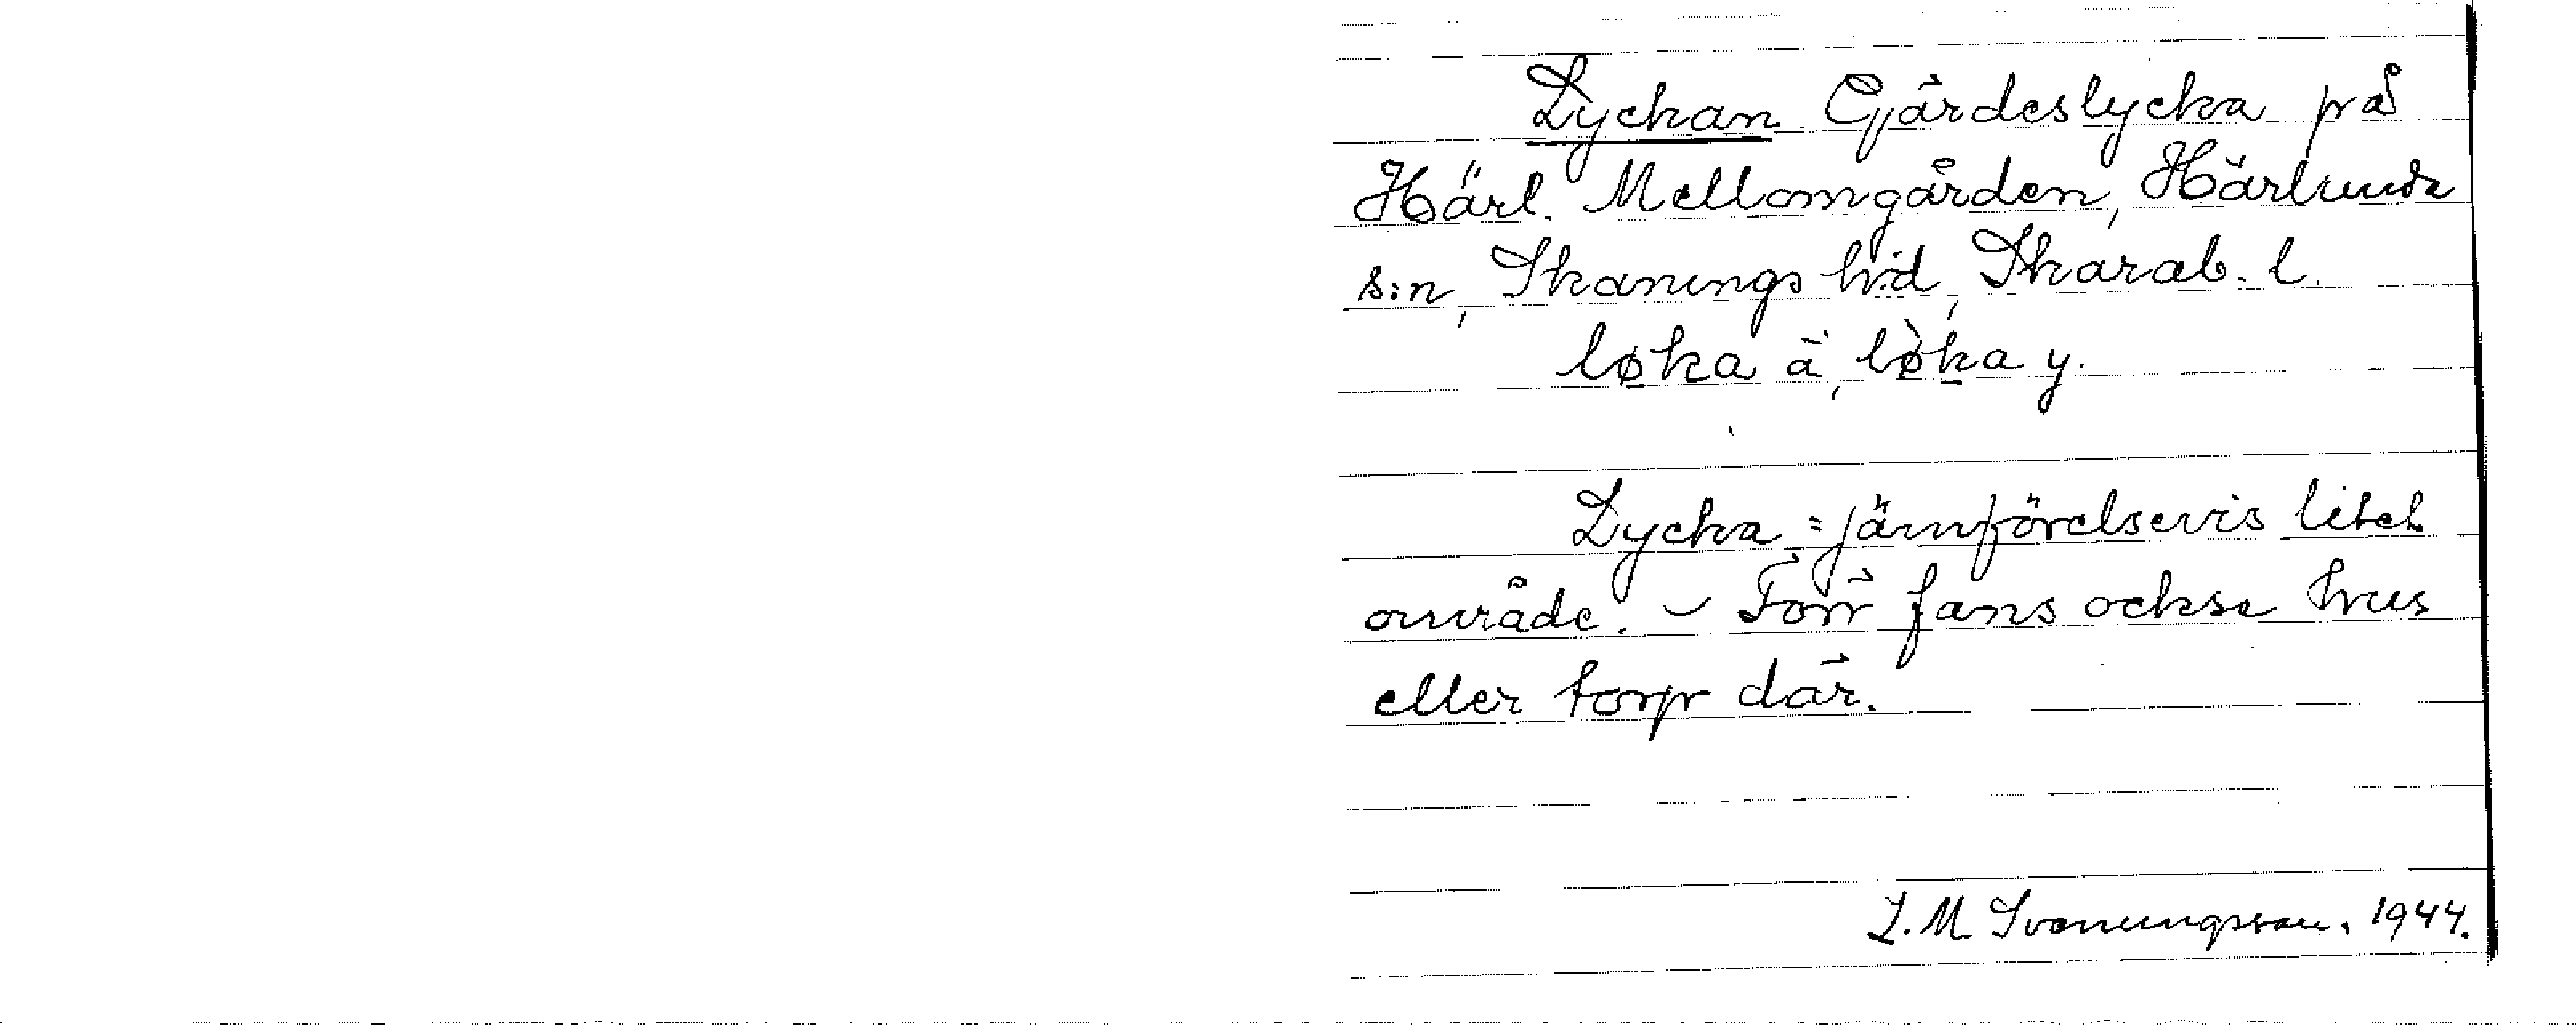 Lyckan Gärdeslycka på
Härl. Mellomgården, Härlunda
s:n, Skanings hd, Skarab. l.
løka ä, lø̀ka y.
Lycka = jämförelsevis litet
område. – Förr fans också hus
eller torp där.
L. M Svanungsson. 1944.